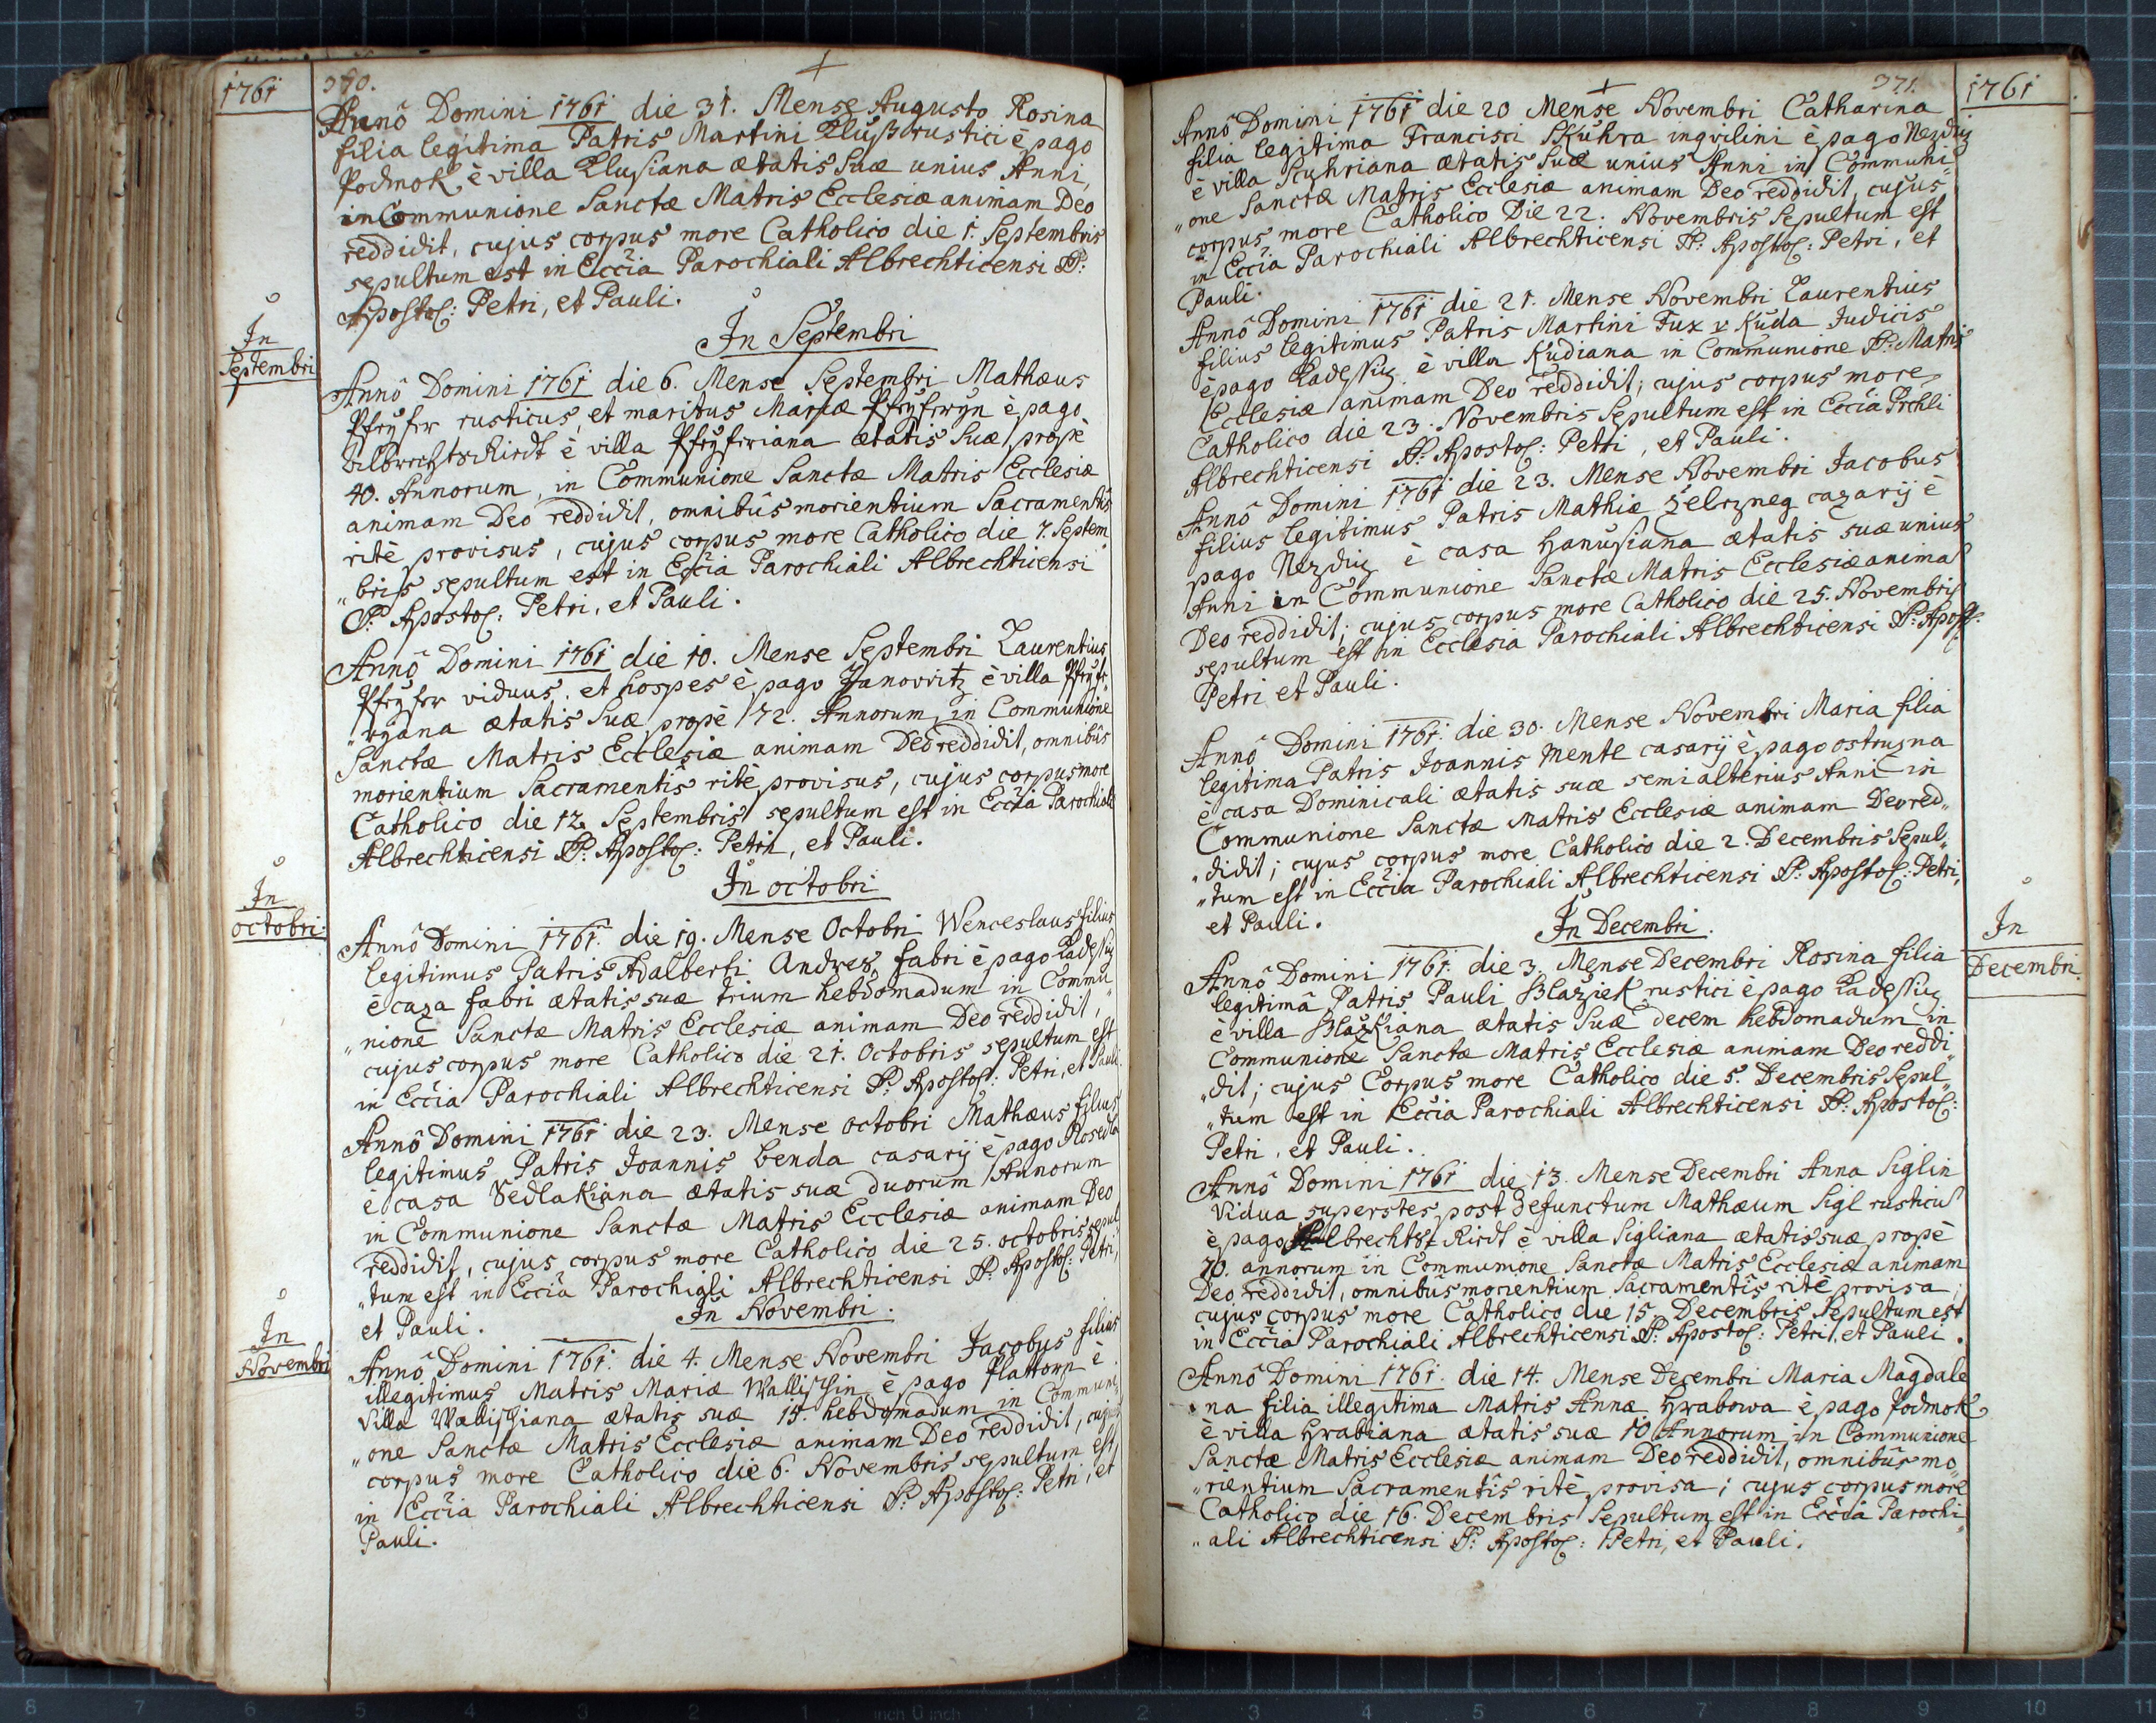 1761
370.
Annô Domini 1761 die 31. Mense Augusto Rosina
filia legitima Patris Martini Klüß rustici è pago
Podmok è villa Klusiana ætatis Suæ unius Anni,
in Communione Sanctæ Matris Ecclesiæ animam Deo
reddidit, cujus corpus more Catholico die 1. Septembris
sepultum est in Eccĩa Parochiali Albrechticensi SS:
Apostol: Petri, et Pauli.
In
Septembri
In Septembri
Annô Domini 1761 die 6. Mense Septembri Mathæus
Pfeÿfer rusticus, et maritus Mariæ Pfeÿferÿn è pago
Albrechtsriedt è villa Pfeÿferiana ætatis Suæ propè
40. Annorum, in Communione Sanctæ Matris Ecclesiæ
animam Deo reddidit, omnibûs morientium Sacramentîs
ritè provisus, cujus corpus more Catholico die 7. Septem
„bris sepultum est in Eccĩa Parochiali Albrechticensi
SS: Apostol: Petri, et Pauli.
Annô Domini 1761 die 10. Mense Septembri Laurentius
Pfeÿfer viduus, et hospes è pago Janovitz è villa Pfeÿfe
„ryana ætatis Suæ propè 72. Annorum, in Communione
Sanctæ Matris Ecclesiæ animam Deo reddidit, omnibûs
morientium Sacramentîs ritè provisus, cujus corpus more
Catholico die 12. Septembris sepultum est in Eccĩa Parochiali
Albrechticensi SS: Apostol: Petri, et Pauli.
In
octobri
In octobri
Annô Domini 1761. die 19. Mense Octobri Wenceslaus filius
legitimus Patris Adalberti Andres, fabri è pago
è caza fabri ætatis suæ trium hebdomadum in Commu
„nione Sanctæ Matris Ecclesiæ animam Deo reddidit,
cujus corpus more Catholico die 21. Octobris sepultum est
in Eccĩa Parochiali Albrechticensi SS: Apostol: Petri, et Pauli
Annô Domini 1761 die 23. Mense octobri Mathæus filius
legitimus Patris Joannis Benda casarij è pago Rosedla
è casa Sedlakiana ætatis suæ duorum Annorum
in Communione Sanctæ Matris Ecclesiæ animam Deo
reddidit, cujus corpus more Catholico die 25. octobris sepul
„tum est in Eccĩa Parochiali Albrechticensi SS: Apostol: Petri,
et Pauli.
In
Novembri
In Novembri.
Annô Domini 1761. die 4. Mense Novembri Jacobus filius
illegitimus Matris Mariæ Wallischin è pago Plattorn è
Villa Wallischiana ætatis suæ 15. hebdomadum in Communi
„one Sanctæ Matris Ecclesiæ animam Deo reddidit, cujus
corpus more Catholico die 6. Novembris sepultum est
in Eccĩa Parochiali Albrechticensi SS: Apostol: Petri, et
Pauli.
371.
1761
Annô Domini 1761 die 20 Mense Novembri Catharina
filia legitima Francisci Skuhra inqvilini è pago Nezdicz
è villa Scuhriana ætatis Suæ unius Anni in Communi
„one Sanctæ Matris Ecclesiæ animam Deo reddidit, cujus
corpus more Catholico Die 22. Novembris Sepultum est
in Eccĩa Parochiali Albrechticensi SS: Apostol: Petri, et
Pauli.
Annô Domini 1761 die 21. Mense Novembri Laurentius
filius legitimus Patris Martini Fux v Kuda Judicis
è pago è villa Kudiana in Communione S: Matris
Ecclesiæ animam Deo reddidit; cujus corpus more
Catholico die 23. Novembris Sepultum est in Eccĩa Prchli
Albrechticensi SS: Apostol: Petri, et Pauli.
Annô Domini 1761 die 23. Mense Novembri Jacobus
filius legitimus Patris Mathiæ Zelezneg cazarij è
pago Nezdicz è casa Hanusiana ætatis suæ unius
Anni in Communione Sanctæ Matris Ecclesiæ animã
Deo reddidit; cujus corpus more Catholico die 25. Novembris
sepultum est in Ecclesia Parochiali Albrechticensi SS: Apost:
Petri et Pauli.
Annô Domini 1761. die 30. Mense Novembri Maria filia
legitima Patris Joannis Mentl casarij è pago ostruzna
è casa Dominicali ætatis suæ semi alterius Anni in
Communione Sanctæ Matris Ecclesiæ animam Deo red„
„didit; cujus corpus more Catholico die 2. Decembris Sepul„
„tum est in Eccĩa Parochiali Albrechticensi SS: Apostol: Petri,
et Pauli.
In Decembri.
In
Decembri.
Annô Domini 1761. die 3. Mense Decembri Rosina filia
legitimâ Patris Pauli Blaziek rustici è pago
è villa Blazkiana ætatis Suæ decem hebdomadum in
Communione Sanctæ Matris Ecclesiæ animam Deo reddi„
„dit; cujus Corpus more Catholico die 5. Decembris Sepul„
„tum est in Eccĩa Parochiali Albrechticensi SS: Apostol:
Petri, et Pauli.
Annô Domini 1761 die 13. Mense Decembri Anna Siglin
Vidua superstes post defunctum Mathæum Sigl rusticũ
è pago Albrechts-Riedt è villa Sigliana ætatis suæ propè
70. annorum in Communione Sanctæ Matris Ecclesiæ animam
Deo reddidit, omnibûs morientium Sacramentîs ritè provisa;
cujus corpus more Catholico die 15. Decembris Sepultum est
in Eccĩa Parochiali Albrechticensi SS: Apostol: Petri, et Pauli.
Annô Domini 1761. die 14. Mense Decembri Maria Magdale
„na filia illegitima Matris Annæ Hrabowa è pago Podmok
è villa Hrabiana ætatis suæ 10 Annorum in Communione
Sanctæ Matris Ecclesiæ animam Deo reddidit, omnibûs mo„
„rientium Sacramentîs ritè provisa; cujus corpus more
Catholico die 16. Decembris Sepultum est in Eccĩa Parochi
„ali Albrechticensi SS: Apostol: Petri, et Pauli.
8 7 6 5 4 3 2 1 inch 0 inch 1 2 3 4 5 6 7 8 9 10 11